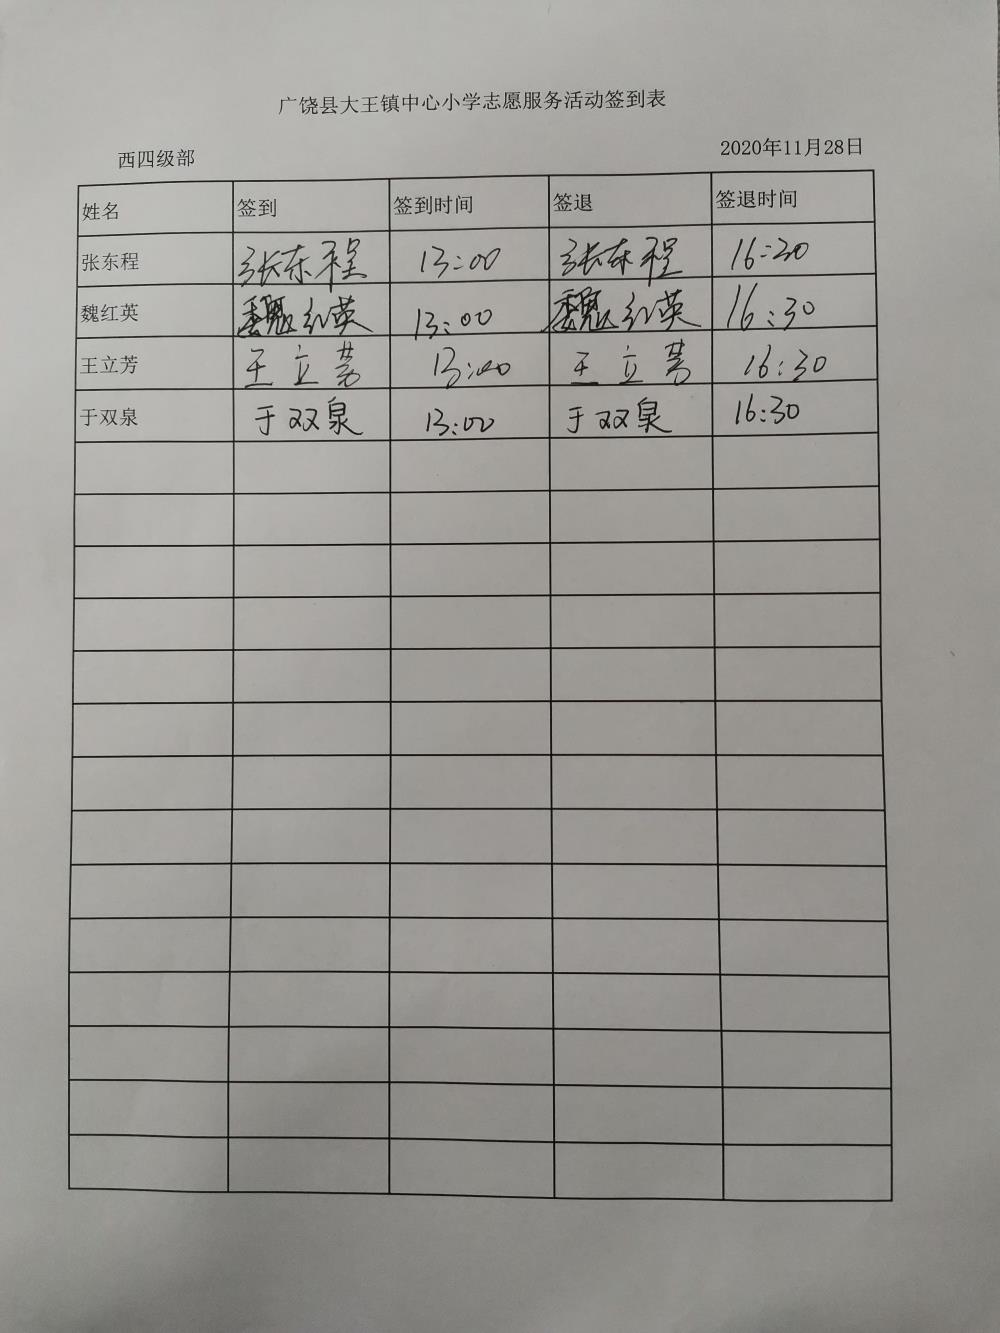 广饶县大王镇中心小学志愿服务活动签到表
西四级部 2020年11月28日
姓名 签到 签到时间 签退 签退时间
张东程 张东程 13:00 张东程 16:30
魏红英 魏红英 13:00 魏红英 16:30
王立芳 王立芳 13:00 王立芳 16:30
于双泉 于双泉 13:00 于双泉 16:30